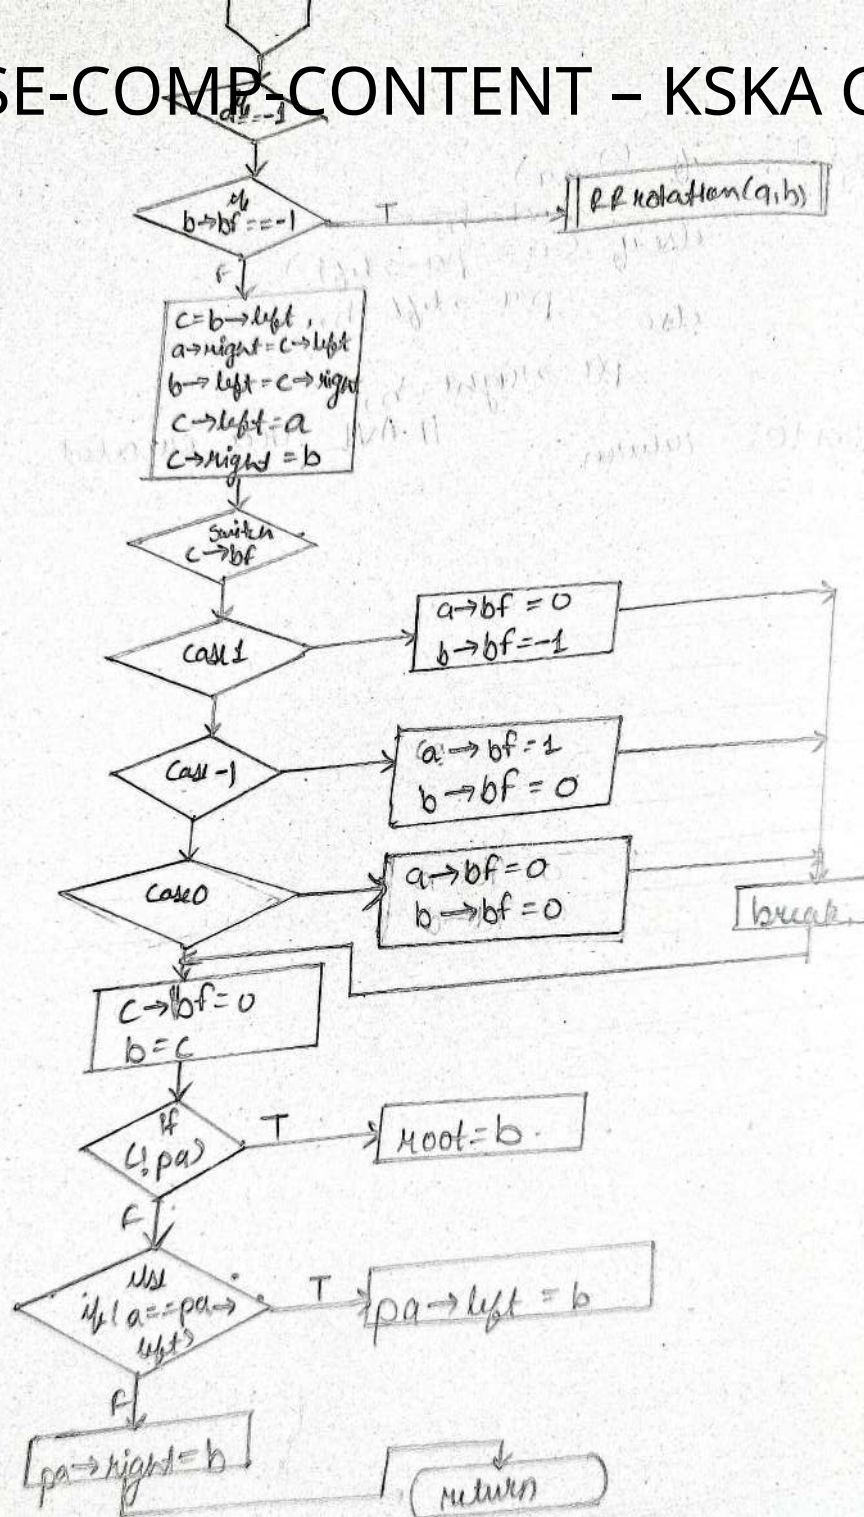 SE-COMP-CONTENT – KSKA
if
d==-1
if
b→bf==-1
T
RRrotation(a,b)
F
c=b→left,
a→right=c→left
b→left=c→right
c→left=a
c→right=b
Switch
c→bf
case1
a→bf=0
b→bf=-1
case-1
a→bf=1
b→bf=0
case0
a→bf=0
b→bf=0
break
c→bf=0
b=c
if
(!pa)
T
root=b.
F
else
if(a==pa→
left)
T
pa→left=b
F
pa→right=b
return